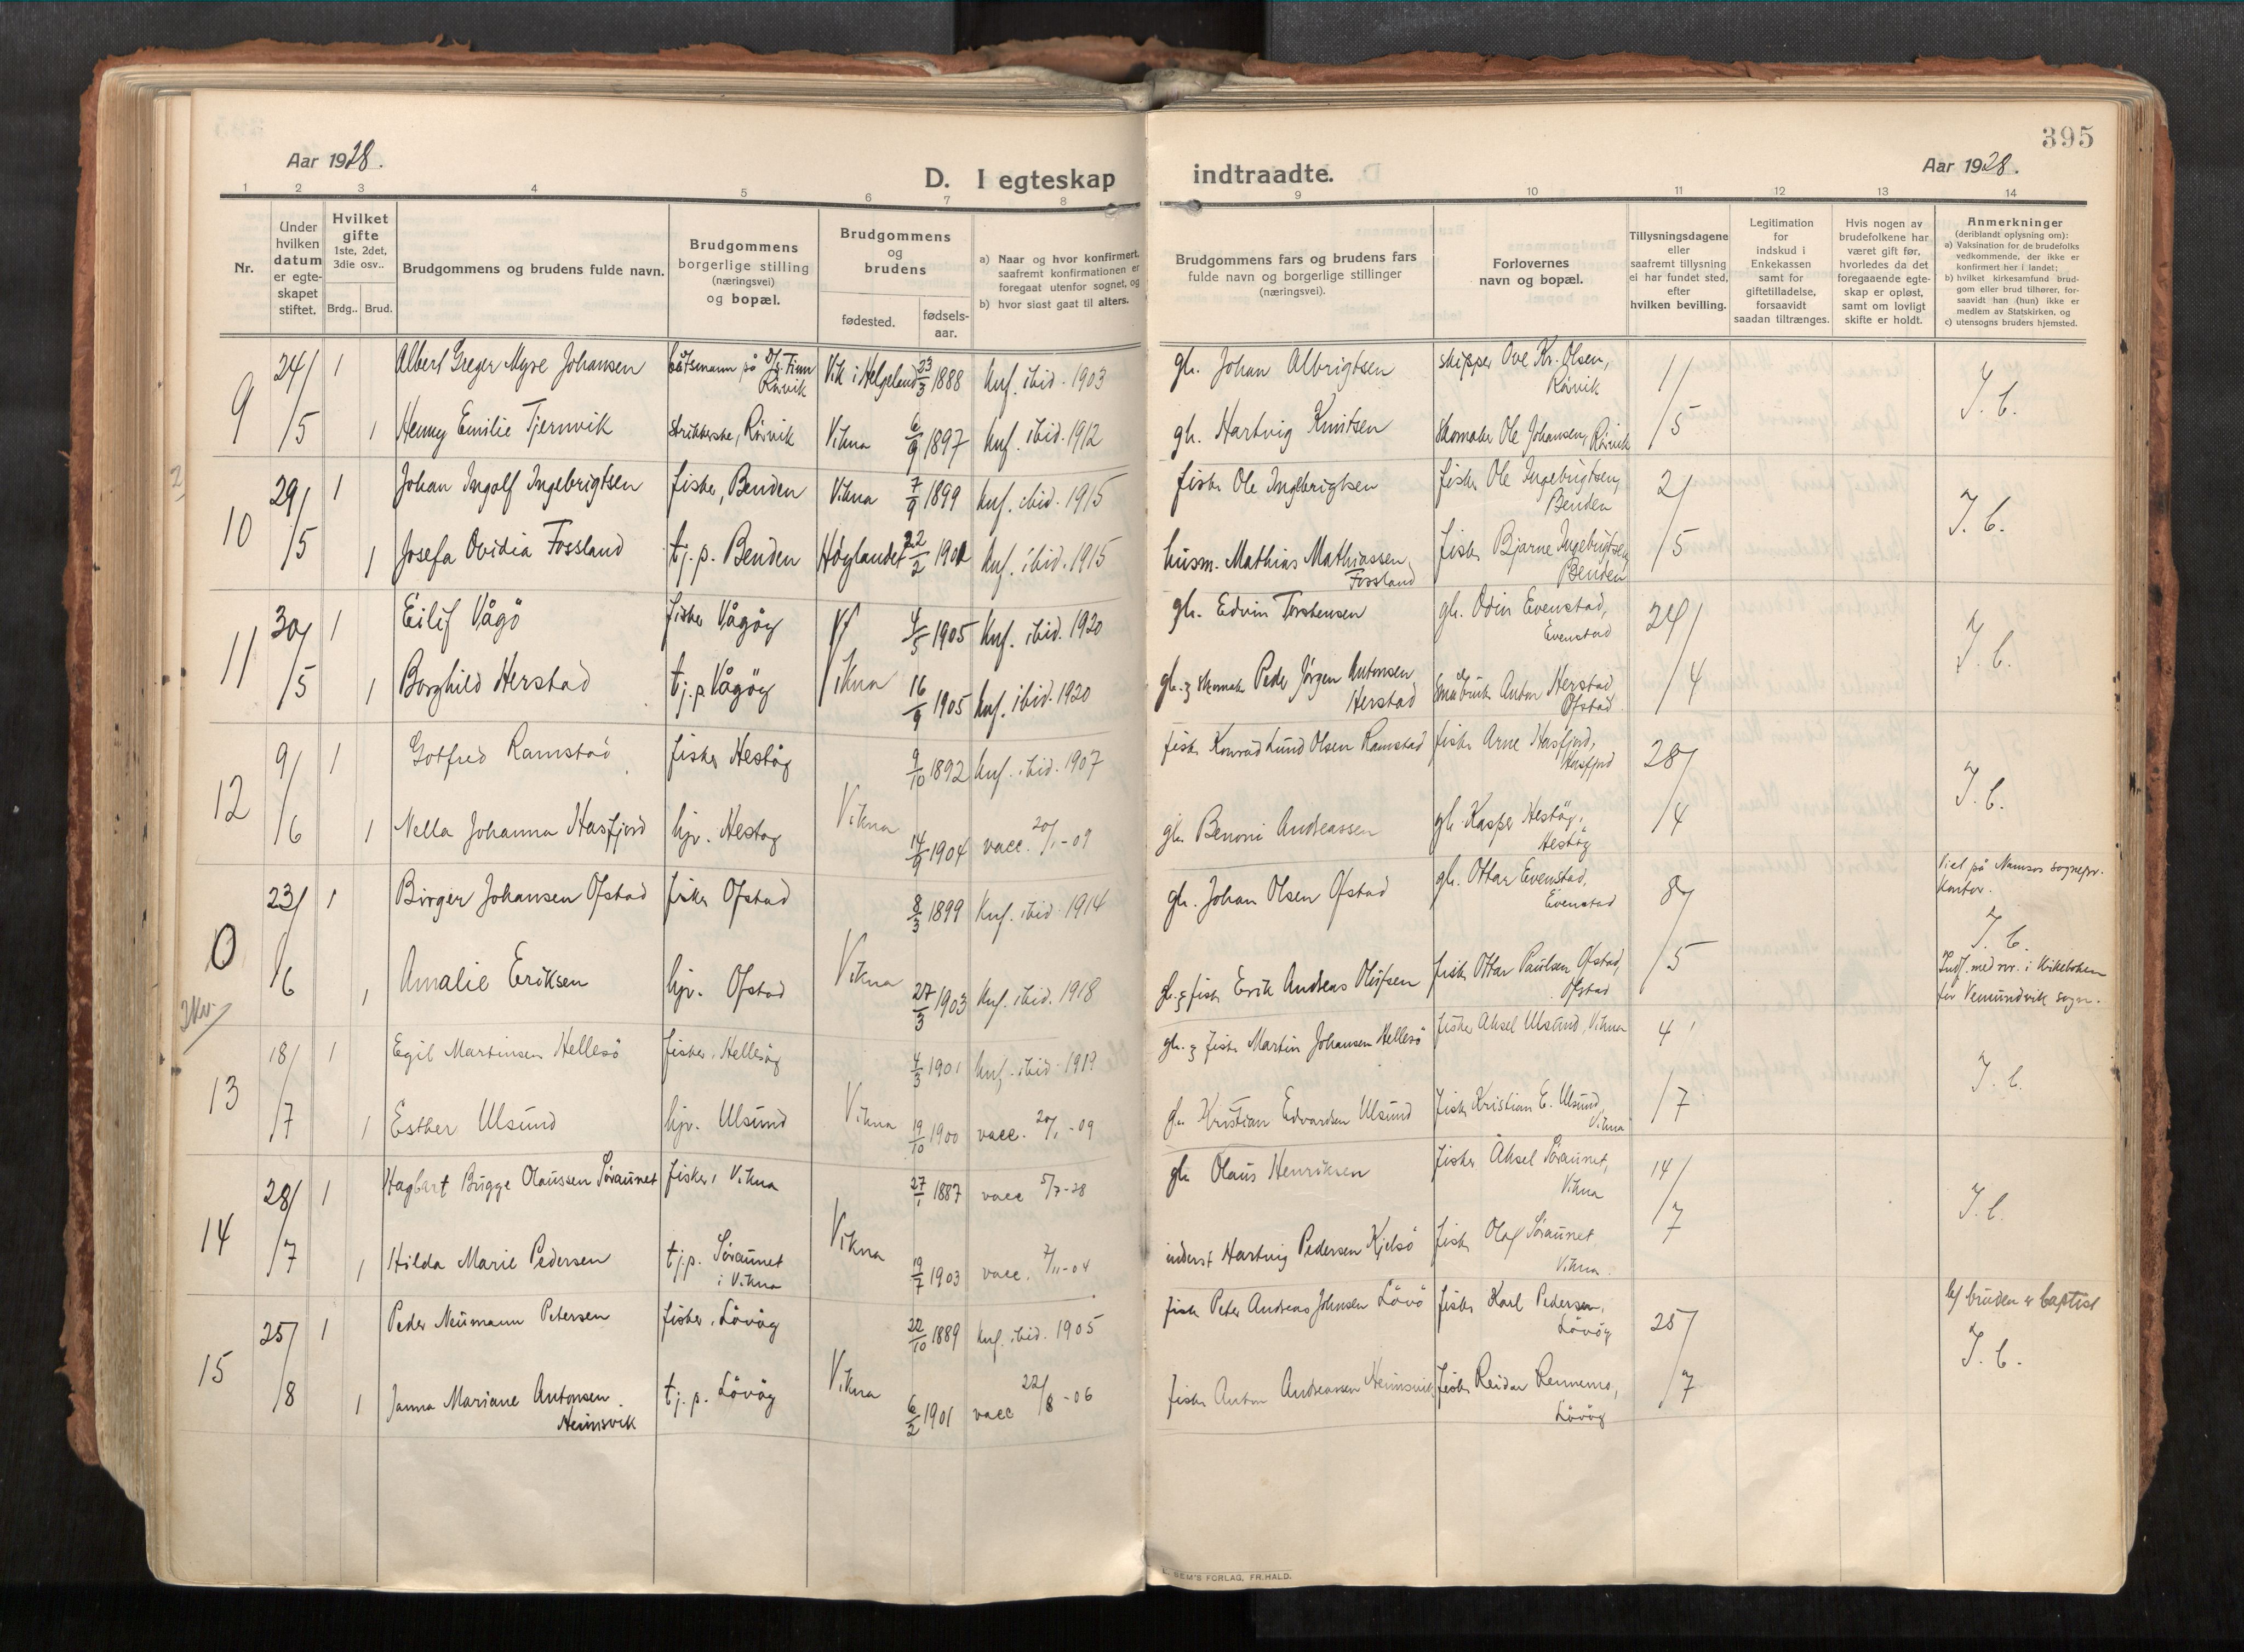 395
Aar 1928.
D. I egteskap indtraadte.
Aar 1928.
1 2 3 4 5 6 7 8 9 10 11 12 13 14
Nr.
Under hvilken datum er egte-skapet stiftet.
Hvilket gifte 1ste, 2det, 3die osv..
Brdg.. Brud.
Brudgommens og brudens fulde navn.
Brudgommens borgerlige stilling (næringsvei) og bopæl.
Brudgommens og brudens
fødested. fødsels-aar.
a) Naar og hvor konfirmert, saafremt konfirmationen er foregaat utenfor sognet, og
b) hvor sidst gaat til alters.
Brudgommens fars og brudens fars fulde navn og borgerlige stillinger (næringsvei).
Forlovernes navn og bopæl.
Tillysningsdagene eller saafremt tillysning ei har fundet sted, efter hvilken bevilling.
Legitimation for indskud i Enkekassen samt for giftetilladelse, forsaavidt saadan tiltrænges.
Hvis nogen av brudefolkene har været gift før, hvorledes da det foregaaende egte-skap er opløst, samt om lovligt skifte er holdt.
Anmerkninger (deriblandt oplysning om):
a) Vaksination for de brudefolks vedkommende, der ikke er konfirmert her i landet;
b) hvilket kirkesamfund brud-gom eller brud tilhører, for-saavidt han (hun) ikke er medlem av Statskirken, og
c) utensogns bruders hjemsted.
9 24/5 1 Albert Greger Myre Johansen båtsmann på D/S. Finn Rørvik Vik i Helgeland 23/3 1888 Knf. ibid. 1903 gh. Johan Albrigtsen skipper Ove Kr. Olsen, Rørvik 1/5 I. C.
1 Henny Emilie Tjernvik strikkerske, Rørvik Vikna 6/9 1897 Knf. ibid. 1912 gh. Hartvig Knutsen Skomaker Ole Johansen, Rørvik
10 29/5 1 Johan Ingolf Ingebrigtsen fisker, Benden Vikna 7/9 1899 Knf. ibid. 1915 fisker Ole Ingebrigtsen fisker Ole Ingebrigtsen, Benden 2/5 I. C.
1 Josefa Ovidia Fossland tj. p. Benden Høylandet 22/2 1901 Knf. ibid. 1915 husm. Mathias Mathiassen Fossland fisker Bjarne Ingebrigtsen, Benden
11 30/5 1 Eilif Vågö fisker Vågöy Vikna 4/5 1905 Knf. ibid. 1920 gh. Edvin Torstensen gh. Odin Evenstad, Evenstad 24/4 I. C.
1 Borghild Herstad tj. p. Vågöy 16/9 1905 Knf. ibid. 1920 gh. & skomaker Peder Jörgen Antonsen Herstad småbruker Anton Herstad Ofstad
12 9/6 1 Gotfred Ramstad fisker Hestöy Vikna 9/10 1892 Knf. ibid. 1907 fisker Konrad Lund Olsen Ramstad fisker Arne Hasfjord, Hasfjord 28/4 I. C.
1 Nella Johanna Hasfjord hjv. Hestöy 14/9 1904 vacc. 20/1-09 gh. Benoni Andreassen gh. Kasper Hestöy, Hestöy
0 23/6 1 Birger Johansen Ofstad fisker Ofstad Vikna 8/3 1899 Knf. ibid. 1914 gh. Johan Olsen Ofstad gh. Ottar Evenstad, Evenstad 8/5 Viet på Namsos sognepr. kontor.
I. C.
1 Amalie Eriksen hjv. Ofstad 27/3 1903 Knf. ibid. 1918 gh. & fisker Erik Andreas Olufsen fisker Ottar Paulsen Ofstad, Ofstad Indf. med nr. i kirkeboken for Vemundvik sogn.
13 18/7 1 Egil Martinsen Hellesö fisker, Hellesöy Vikna 4/3 1901 Knf. ibid. 1919 gh. & fisker Martin Johansen Hellesö fisker Aksel Ulsund, Vikna 4/7 I. C.
1 Esther Ulsund hjv. Ulsund 19/10 1900 vacc. 20/1-09 gh. Kristian Edvardsen Ulsund fisker Kristian E. Ulsund, Vikna
14 28/7 1 Hagbart Bugge Olaussen Søraunet fisker, Vikna Vikna 27/1 1887 vacc 5/7-28 gh Olaus Henriksen fisker Aksel Søraunet, Vikna 14/7 I. C.
1 Hilda Marie Pedersen tj. p. Søraunet i Vikna 19/7 1903 vacc. 7/11-04 inderst Hartvig Pedersen Kjelsö fisker Olaf Søraunet Vikna
15 25/8 1 Peder Neumann Petersen fisker, Lövöy Vikna 22/10 1889 Knf. ibid. 1905 fisker Peter Andreas Johnsen Lövö fisker Karl Pedersen, Lövöy 28/7 b/ bruden er baptist
I. C.
1 Janna Mariane Antonsen Heimsvik tj. p. Lövöy 6/2 1901 vacc 22/8-06 fisker Anton Andreassen Heimsvik fisker Reidar Rennemo, Lövöy
SEM'S FORLAG, FR.HALD.